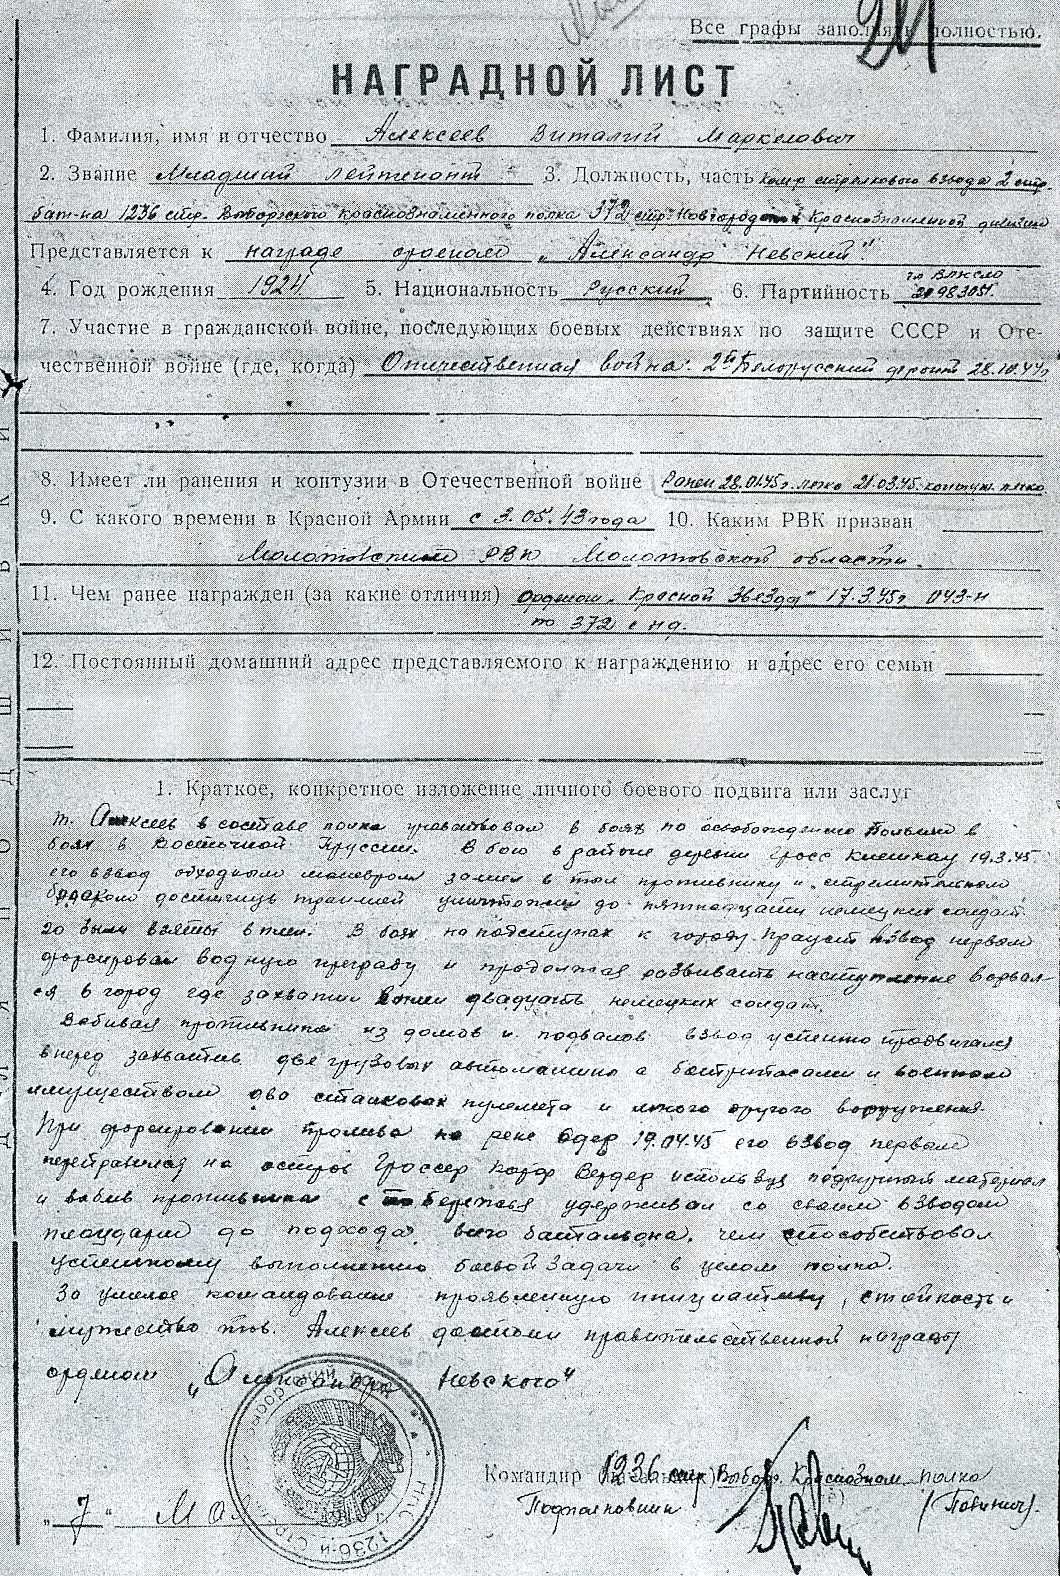 Все графы заполнять полностью.
НАГРАДНОЙ ЛИСТ
1. Фамилия, имя и отчество Алексеев Виталий Маркелович
2. Звание Младший лейтенант 3. Должность, часть ком-р стрелкового взвода 2 стр.
бат-на 1236 стр. Выборжского краснознаменного полка 372 стр. Новгородской Краснознаменной дивизии
Представляется к награде орденом „Александр Невский".
4. Год рождения 1924. 5. Национальность Русский 6. Партийность чл ВЛКСМ
7. Участие в гражданской войне, последующих боевых действиях по защите СССР и Оте-
чественной войне (где, когда) Отечественная война. 2ой Белорусский фронт 28.10.44г
8. Имеет ли ранения и контузии в Отечественной войне Ранен 28.01.45г. легко 21.03.45. контуж. легко
9. С какого времени в Красной Армии с 3.05.43 года 10. Каким РВК призван
Молотовским РВК Молотовской области.
11. Чем ранее награжден (за какие отличия) орденом „Красной Звезды" 17.3.45г. 043-н
по 372 с нд.
12. Постоянный домашний адрес представляемого к награждению и адрес его семьи
1. Краткое, конкретное изложение личного боевого подвига или заслуг
т. Алексеев в составе полка участвовал в боях по освобождению Польши в
боях в Восточной Пруссии. В бою в районе деревни Гросс 19.3.45.
его взвод обходным маневром зашел в тыл противнику и стремительном
броском достигнув траншей уничтожил до пятнадцати немецких солдат
20 были взяты в плен. В боях на подступах к городу Прауст взвод первым
форсировал водную преграду и продолжая развивать наступление ворвал-
ся в город где захватил в плен двадцать немецких солдат.
Выбивая противника из домов и подвалов взвод успешно продвигался
вперед захватив две грузовых автомашины с боеприпасами и военным
имуществом два станковых пулемета и много другого вооружения.
При форсировании пролива на реке Одер 19.04.45 его взвод первым
переправился на остров Гроссер Вердер используя подручный материал
и выбив противника с побережья удерживал со своим взводом
плацдарм до подхода всего баттальона, чем способствовал
успешному выполнению боевой задачи в целом полка.
За умелое командование проявленную инициативу, стойкость и
мужество тов. Алексеев достоин правительственной награды
орденом „Александра Невского"
Командир 1236 стр. Выборг. Краснознам. полка
Подполковник (Павинич).
„7" Мая